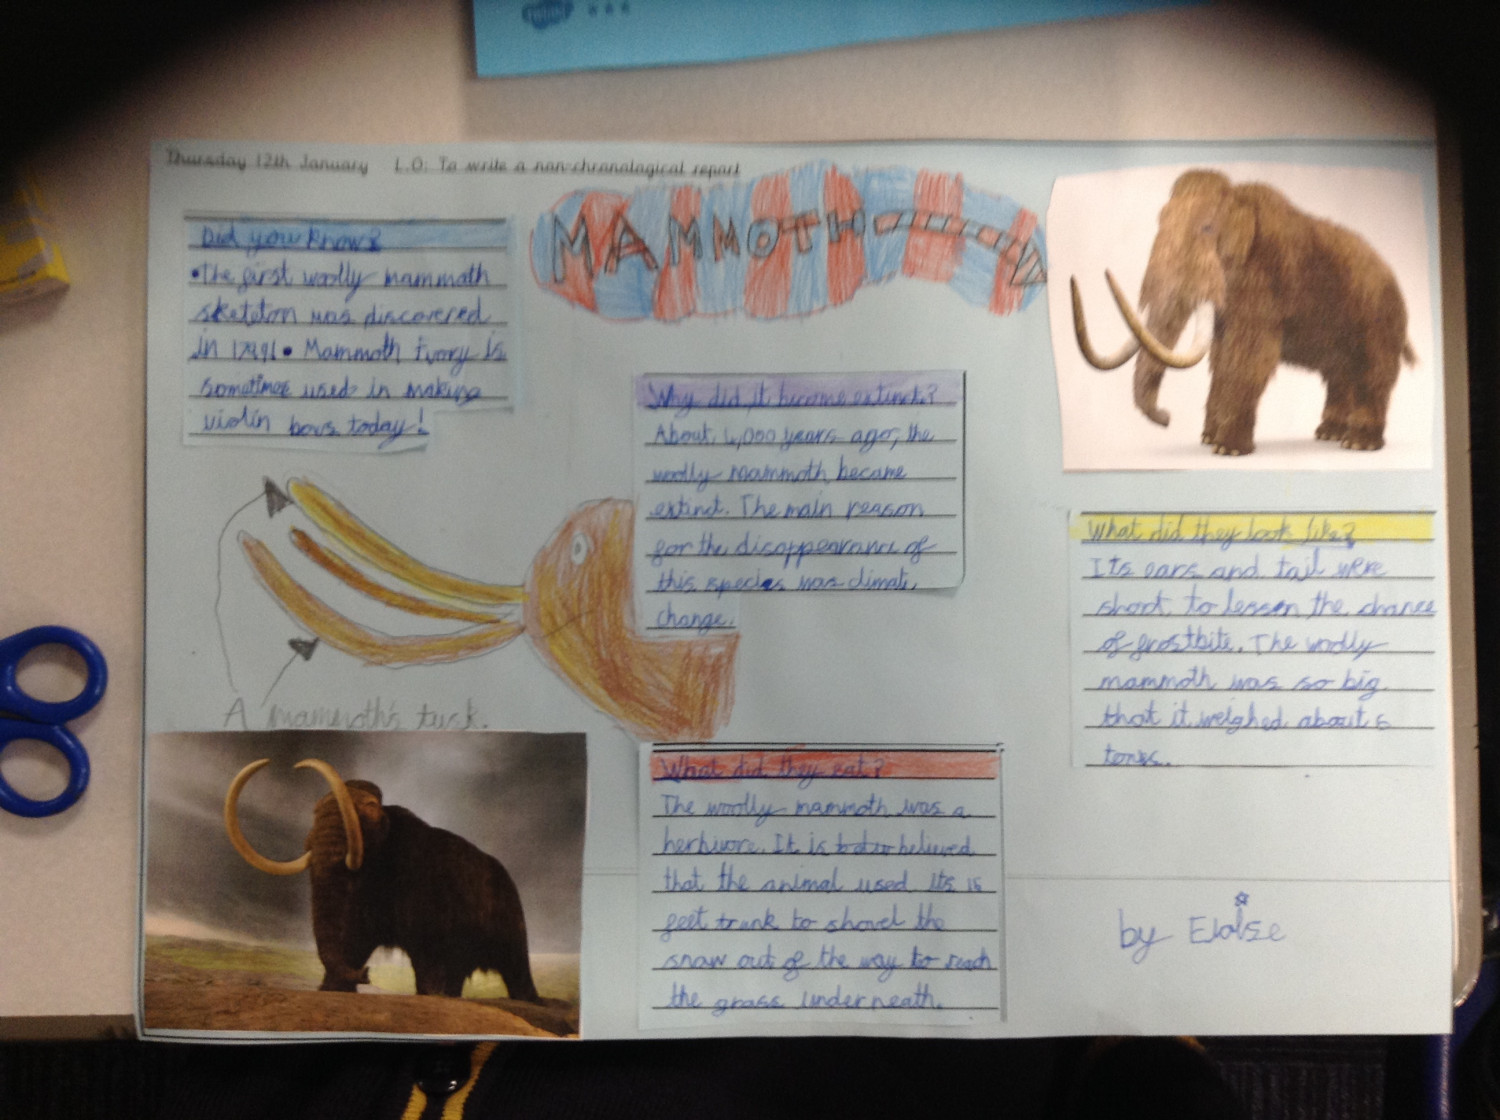 Thursday 12th January L.O: To write a non-chronological report
MAMMOTH
Did you know?
•The first woolly mammoth
skeleton was discovered
in • Mammoth Ivory is
sometimes used in making
violin bows today!
Why did it become extinct?
About 4,000 years ago, the
woolly mammoth became
extinct. The main reason
for the disappearance of
this species was climate
change.
What did they look like?
Its ears and tail were
short to lessen the chance
of frostbite. The woolly
mammoth was so big
that it weighed about 6
tones.
A mammoth's tusk.
What did they eat?
The woolly mammoth was a
herbivore. It is believed
that the animal used its 15
feet trunk to shovel the
snow out of the way to reach
the grass underneath.
by Eloise